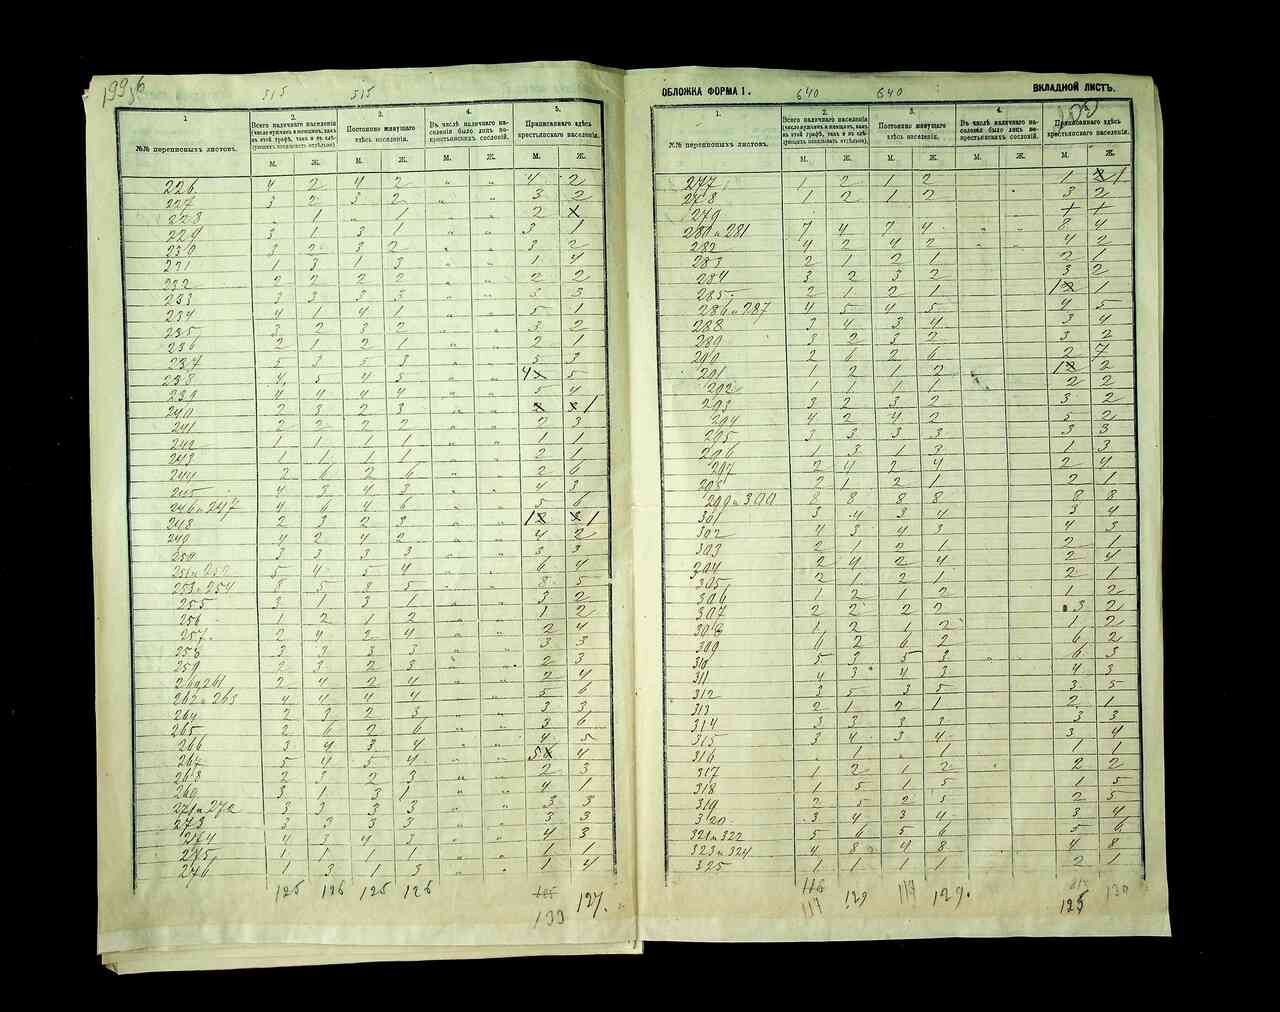 515 515
1. 2. 3. 4. 5.
№№ переписныхъ листовъ. Всего наличнаго населенія Постоянно живущаго здѣсь населенія. Въ числѣ наличнаго населенія было лицъ некрестьянскихъ сословій. Приписаннаго здѣсь крестьянскаго населенія.
М. Ж. М. Ж. М. Ж. М. Ж.
226 4 2 4 2 " " 4 2
227 3 2 3 2 " " 3 2
228 " 1 " 1 " " 2
229 3 1 3 1 " " 3 1
230 3 2 3 2 " " 3 2
231 1 3 1 3 " " 1 4
232 2 2 2 2 " " 2 2
233 3 3 3 3 " " 3 3
234 4 1 4 1 " " 5 1
235 3 2 3 2 " " 3 2
236 2 1 2 1 " " 2 1
237 5 3 5 3 " " 5 3
238 4 5 4 5 " " 4 5
239 4 4 4 4 " " 5 4
240 2 3 2 3 " " 1
241 2 2 2 2 " " 2 3
242 1 1 1 1 " " 1 1
243 1 1 1 1 " " 2 1
244 2 6 2 6 " " 2 6
245 4 3 4 3 " " 4 3
246 и 247 4 6 4 6 " " 5 6
248 2 3 2 3 " " 1 1
249 4 2 4 2 " " 4 2
250 3 3 3 3 " " 3 3
251 и 252 5 4 5 4 " " 6 4
253 и 254 8 5 8 5 " " 8 5
255 3 1 3 1 " " 3 2
256 1 2 1 2 " " 1 2
257 2 4 2 4 " " 2 4
258 3 3 3 3 " " 3 3
259 2 3 2 3 " " 2 3
260 и 261 2 4 2 4 " " 2 4
262 и 263 4 4 4 4 " " 5 6
264 2 3 2 3 " " 3 3
265 2 6 2 6 " " 3 6
266 3 4 3 4 " " 4 5
267 5 4 5 4 " " 5 4
268 2 3 2 3 " " 2 3
269 3 1 3 1 " " 4 1
271 и 272 3 3 3 3 " " 3 3
273 3 3 3 3 " " 3 3
274 4 3 4 3 " " 4 3
275 1 1 1 1 " " 1 1
276 1 3 1 3 " " 1 4
125 126 125 126 127.
133
ОБЛОЖКА ФОРМА 1. 640 640 ВКЛАДНОЙ ЛИСТЪ.
1. 2. 3. 4. 5.
№№ переписныхъ листовъ. Всего наличнаго населенія Постоянно живущаго здѣсь населенія. Въ числѣ наличнаго населенія было лицъ некрестьянскихъ сословій. Приписаннаго здѣсь крестьянскаго населенія.
М. Ж. М. Ж. М. Ж. М. Ж.
277 1 2 1 2 1 1
278 1 2 1 2 3 2
279 + +
280 и 281 7 4 7 4 " " 8 4
282 4 2 4 2 " " 4 2
283 2 1 2 1 2 1
284 3 2 3 2 3 2
285 2 1 2 1 1 1
286 и 287 4 5 4 5 4 5
288 3 4 3 4 3 4
289 3 2 3 2 3 2
290 2 6 2 6 2 7
291 1 2 1 2 1 2
292 1 1 1 1 2 2
293 3 2 3 2 3 2
294 4 2 4 2 5 2
295 3 3 3 3 3 3
296 1 3 1 3 1 3
297 2 4 2 4 2 4
298 2 1 2 1 2 1
299 и 300 8 8 8 8 8 8
301 3 4 3 4 3 4
302 4 3 4 3 4 3
303 2 1 2 1 2 1
304 2 4 2 4 2 4
305 2 1 2 1 2 1
306 1 2 1 2 1 2
307 2 2 2 2 3 2
308 1 2 1 2 1 2
309 6 2 6 2 6 2
310 5 3 5 3 6 3
311 4 3 4 3 4 3
312 3 5 3 5 3 5
313 2 1 2 1 2 1
314 3 3 3 3 3 3
315 3 4 3 4 3 4
316 " 1 " 1 1 1
317 1 2 1 2 2 2
318 1 5 1 5 1 5
319 2 5 2 5 2 5
320 3 4 3 4 3 4
321 и 322 5 6 5 6 5 6
323 и 324 4 8 4 8 4 8
325 1 1 1 1 2 1
116 129 117 129. 130
117 125